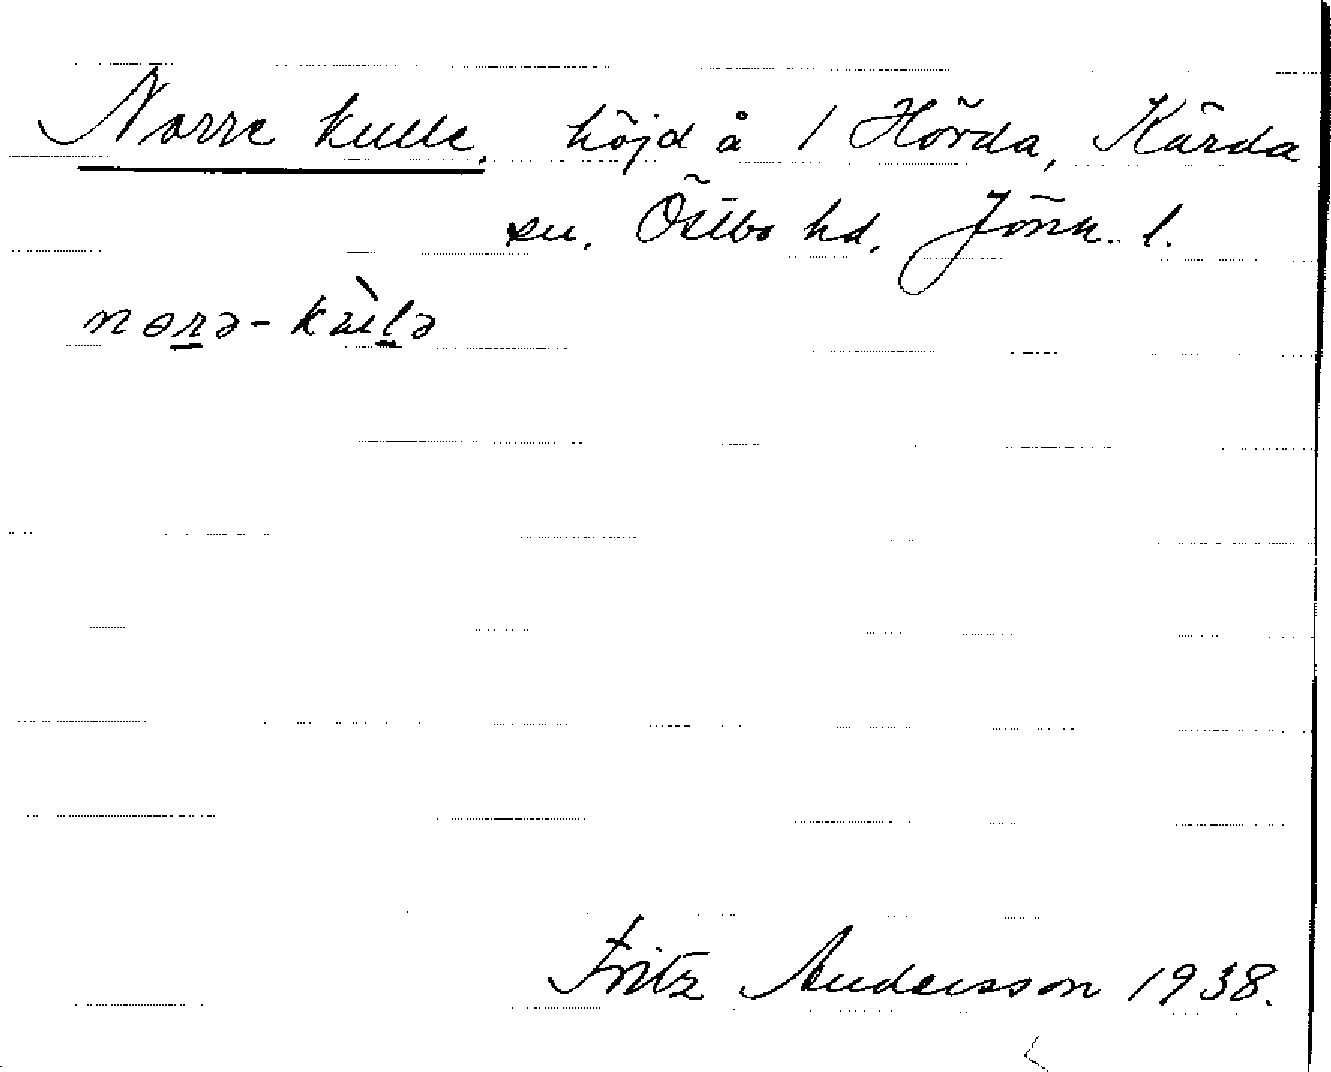 Norre kulle, höjd å 1 Hörda, Kärda
sn, Östbo hd, Jönk. l.
nɵrə-kùlə
Fritz Andersson 1938.